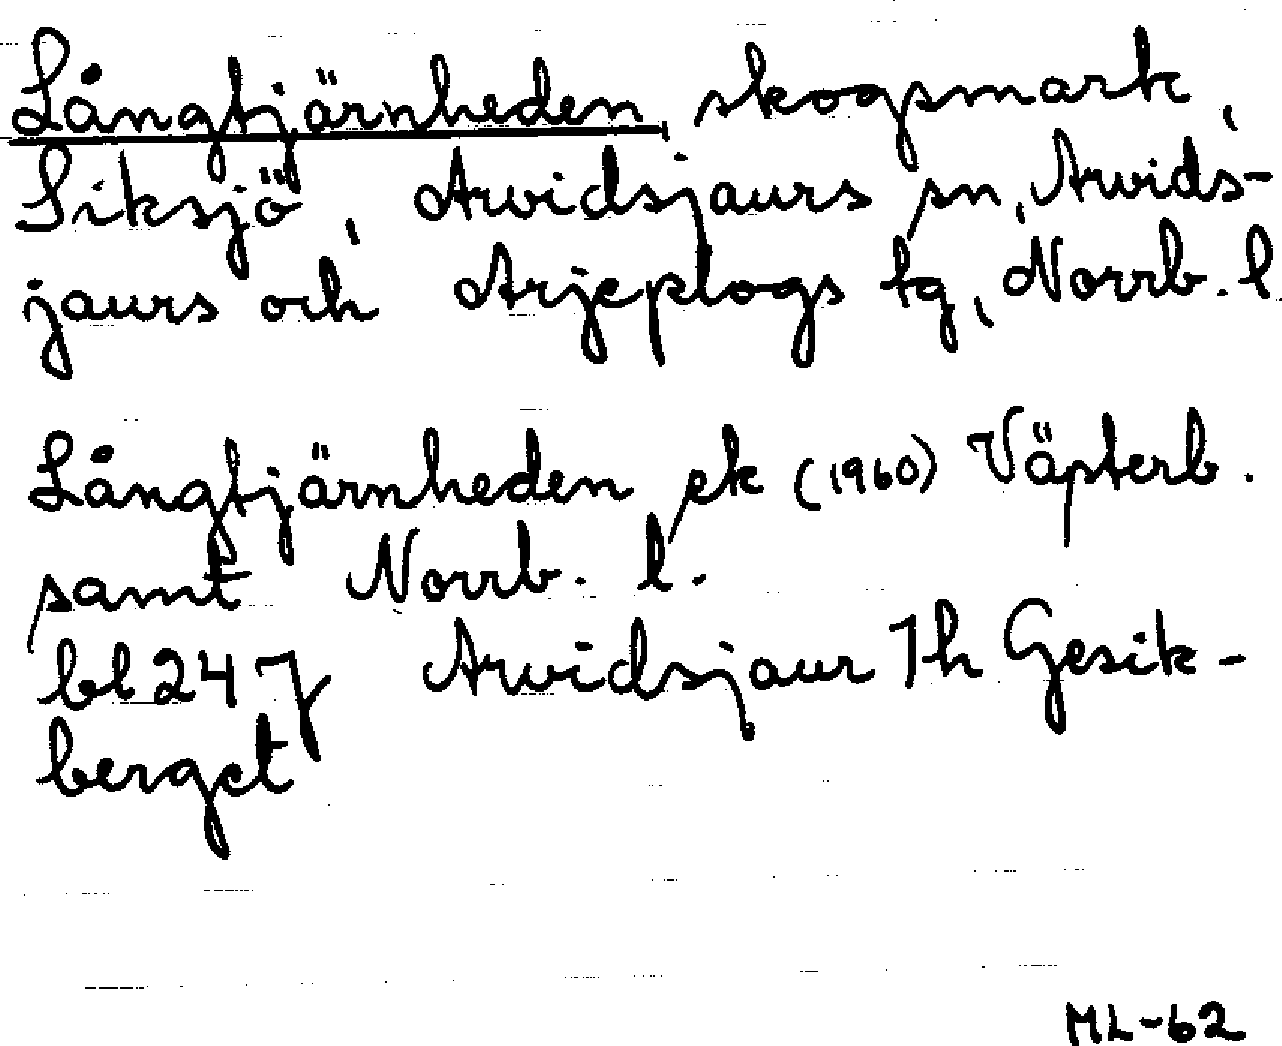 Långtjärnheden, skogsmark,
Siksjö, Arvidsjaurs sn, Arvids-
jaurs och Arjeplogs tg, Norrb. l.
Långtjärnheden ek (1960) Västerb.
samt Norrb. l.
bl 24 J Arvidsjaur 1h Gesik-
berget
ML-62